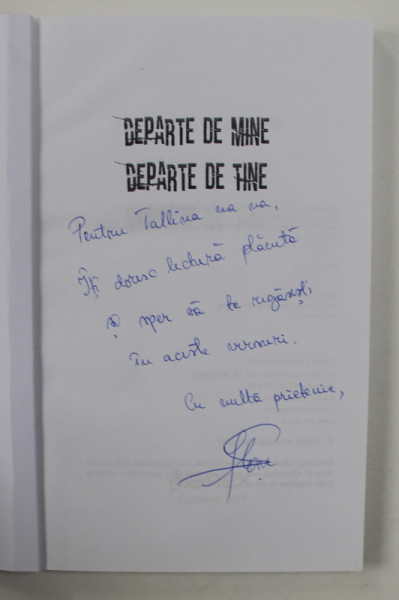 DEPARTE DE MINE
DEPARTE DE TINE
Pentru Tallina na na,
Îți doresc lectură plăcută
Și sper să te regăsești
în aceste versuri.
Cu multă prietenie,